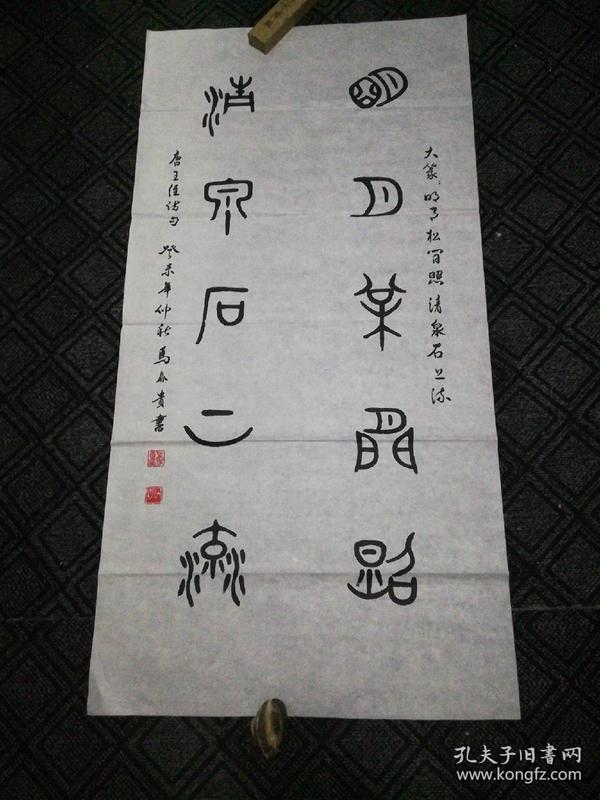 大篆：明月松间照清泉石上流
明月松間照
清泉石上流
唐王维诗句
癸未年仲秋馬介貴書
孔夫子旧书网
www.kongfz.com